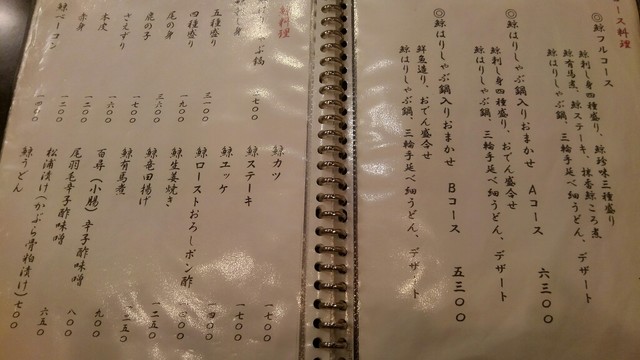 コース料理
◎鯨フルコース
鯨刺し身四種盛り、鯨珍味三種盛り
鯨有馬煮、鯨ステーキ、鯨ころ煮
鯨はりしゃぶ鍋、三輪手延べ細うどん、デザート
◎鯨はりしゃぶ鍋入りおまかせ Aコース 六三〇〇
鯨刺し身四種盛り、おでん盛合せ
鯨はりしゃぶ鍋、三輪手延べ細うどん、デザート
◎鯨はりしゃぶ鍋入りおまかせ Bコース 五三〇〇
鮮魚造り、おでん盛合せ
鯨はりしゃぶ鍋、三輪手延べ細うどん、デザート
料理
はりしゃぶ鍋
刺し身
五種盛り 三一〇〇
四種盛り
尾の身 三六〇〇
鹿の子
さえずり
本皮
赤身 一二〇〇
鯨ベーコン
鯨カツ 一七〇〇
鯨ステーキ 一七〇〇
鯨ユッケ 一四〇〇
鯨ローストおろしポン酢
鯨生姜焼き
鯨竜田揚げ 一二五〇
鯨有馬煮
百尋(小腸)辛子酢味噌 九〇〇
尾羽毛辛子酢味噌 八〇〇
松浦漬け(かぶら骨粕漬け) 六五〇
鯨うどん 七〇〇